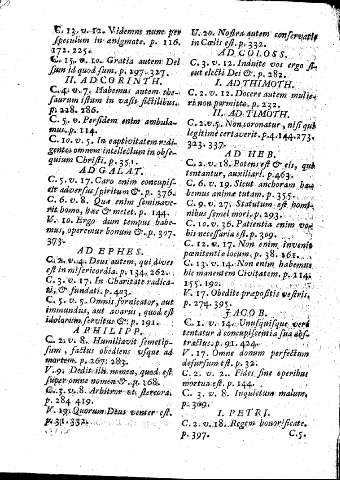 C. 13. v. 12. Videmus nunc per
speculum in ænigmate. p. 116.
172. 225.
C. 15. v. 10. Gratia autem Dei
sum id quod sum. p. 297. 327.
II. AD CORINTH.
C. 4. v. 7. Habemus autem the-
saurum istum in vasis fictilibus.
p. 228. 286.
C. 5. v. Per fidem enim ambula-
mus. p. 114.
C. 10. v. 5. In captivitatem redi-
gentes omnem intellectum in obse-
quium Christi. p. 351.
AD GALAT.
C. 5. v. 17. Caro enim concupis-
cit adversus spiritum &. p. 36.
C. 6. v. 8. Quæ enim seminave-
rit homo, hæc & metet. p. 144.
V. 10. Ergo dum tempus habe-
mus, operemur bonum &. p. 307.
373.
AD EPHES.
C. 2. v. 4. Deus autem, qui dives
est in misericordia. p. 134. 262.
C. 3. v. 17. In charitate radica-
ti, & fundati. p. 403.
C. 5. v. 5. Omnis fornicator, aut
immundus, aut avarus, quod est
idolorum servitus &. p. 191.
A PHILIPP.
C. 2. v. 8. Humiliavit semetip-
sum, factus obediens usque ad
mortem. p. 267. 283.
V. 9. Dedit illi nomen, quod est
super omne nomen &. p. 168.
C. 3. v. 8. Arbitror ut stercora.
p. 284. 419.
V. 19. Quorum Deus venter est.
p. 311. 332.
U. 20. Nostra autem conservatio
in Cœlis est. p. 332.
AD COLOSS.
C. 3. v. 12. Induite vos ergo si-
cut electi Dei &. p. 282.
I. AD THIMOTH.
C. 2. v. 12. Docere autem mulie-
ri non permitto. p. 232.
II. AD TIMOTH.
C. 2. v. 5. Non coronatur, nisi qui
legitimè certaverit. p. 4. 144. 273.
323. 337.
AD HEB.
C. 2. v. 18. Potens est & eis, qui
tentantur, auxiliari. p. 463.
C. 6. v. 19. Sicut anchoram ha-
bemus animæ tutam. p. 355.
C. 9. v. 27. Statutum est homi-
nibus semel mori. p. 293.
C. 10. v. 36. Patientia enim vo-
bis necessaria est. p. 309.
C. 12. v. 17. Non enim invenit
pœnitentiæ locum. p. 38. 161.
C. 13. v. 14. Non enim habemus
hîc manentem Civitatem. p. 114.
155. 192.
V. 17. Obedite præpositis vestris.
p. 274. 395.
JACOB.
C. 1. v. 14. Unusquisque verò
tentatur à concupiscentia sua abs-
tractus. p. 91. 424.
V. 17. Omne donum perfectum
desursum est. p. 32.
C. 2. v. 2. Fides sine operibus
mortua est. p. 144.
C. 3. v. 8. Inquietum malum.
p. 309.
I. PETRI.
C. 2. v. 18. Regem honorificate.
p. 397. C. 5.